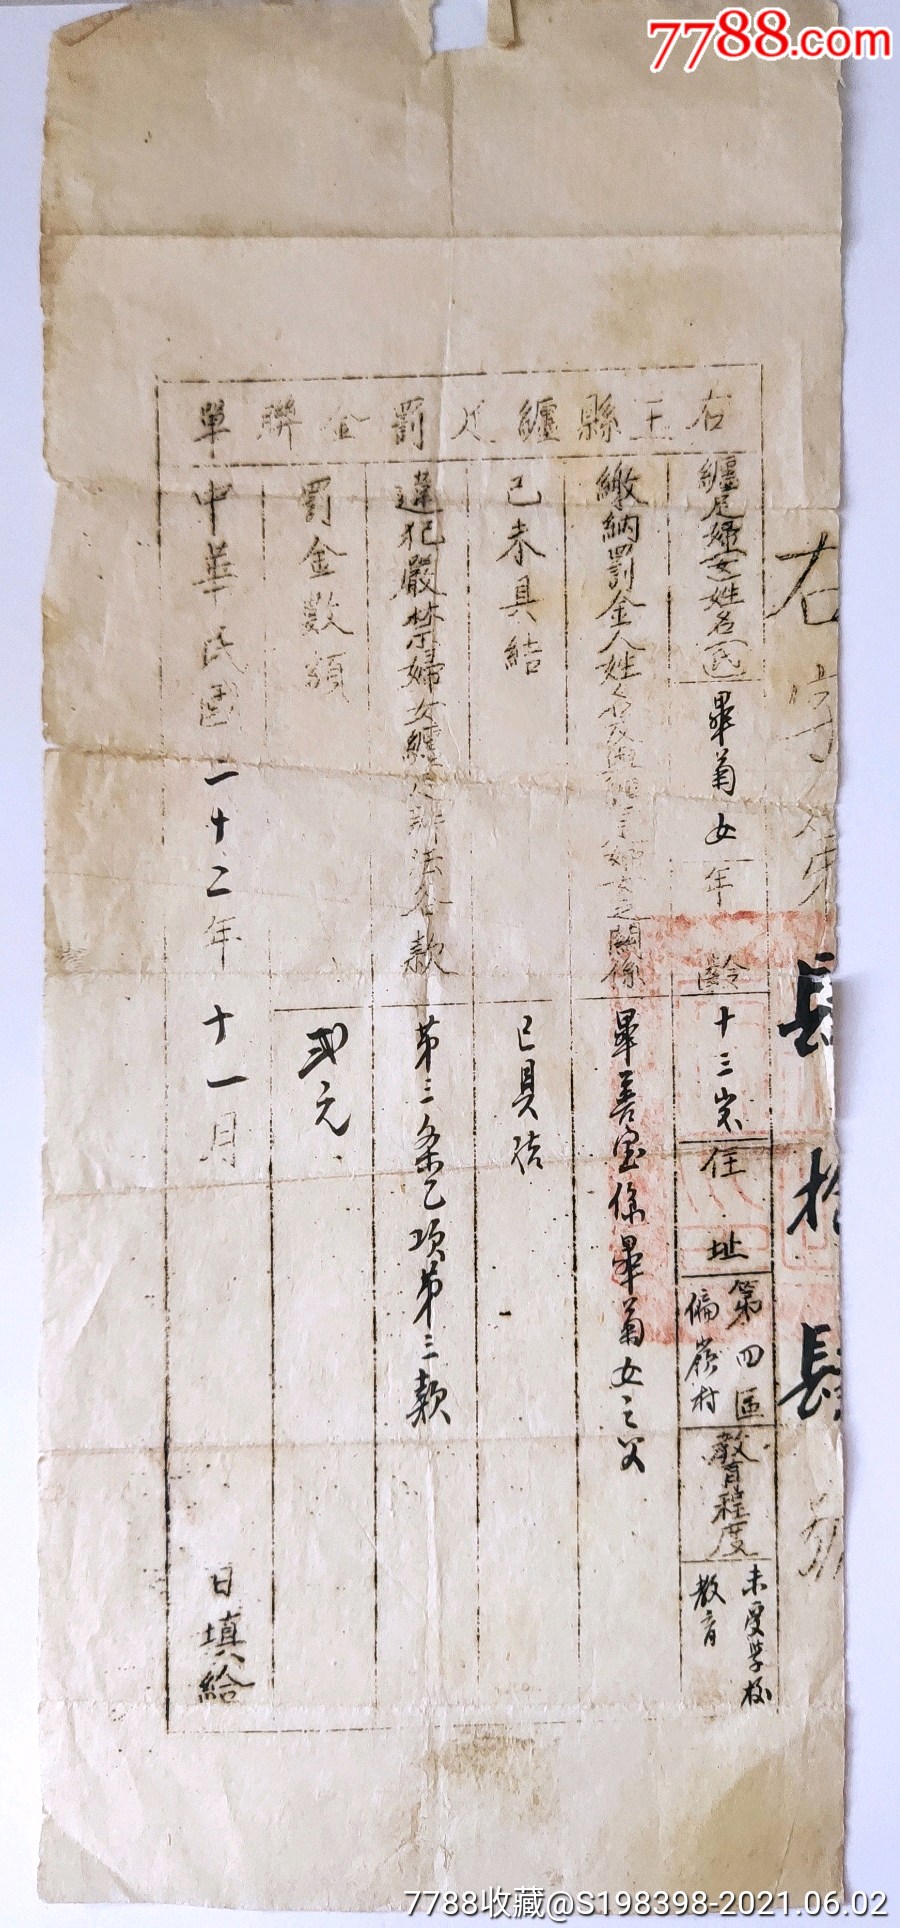 7788.com
右玉縣纏足罰金聯單
右字第
肆拾肆號
纏足婦女姓名(氏)
畢菊女
年齡
十三歲
住址
第四區
偏嶺村
教育程度
未受学校
教育
繳納罰金人姓名及與纏足婦女之關係
畢善宝係畢菊女之父
已未具結
已具结
違犯嚴禁婦女纏足辦法各款
第三条乙项第三款
罰金數額
弍元
中華民國二十二年十一月 日填給
7788收藏@S198398-2021.06.02